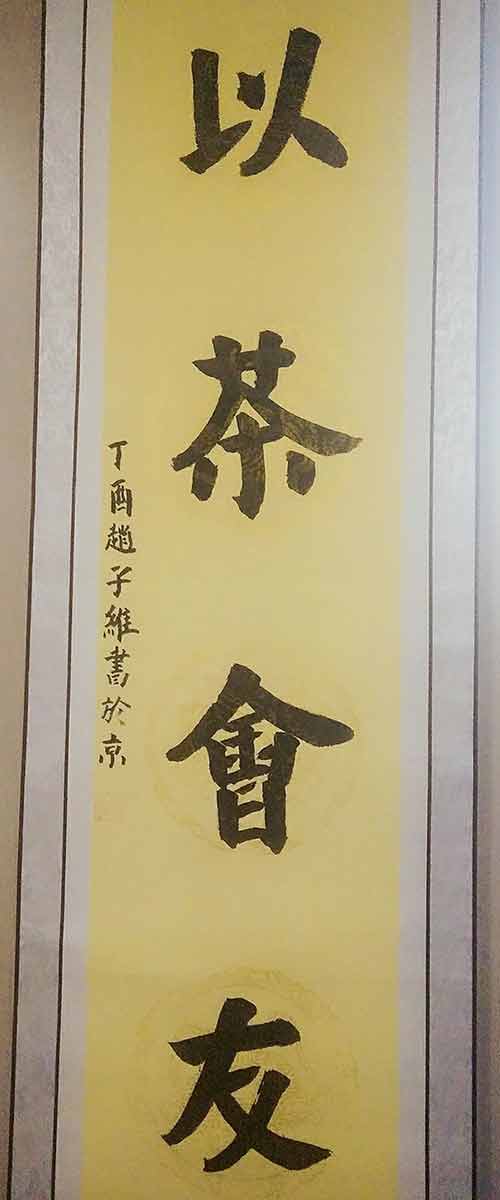 以茶會友
丁酉趙子維書於京